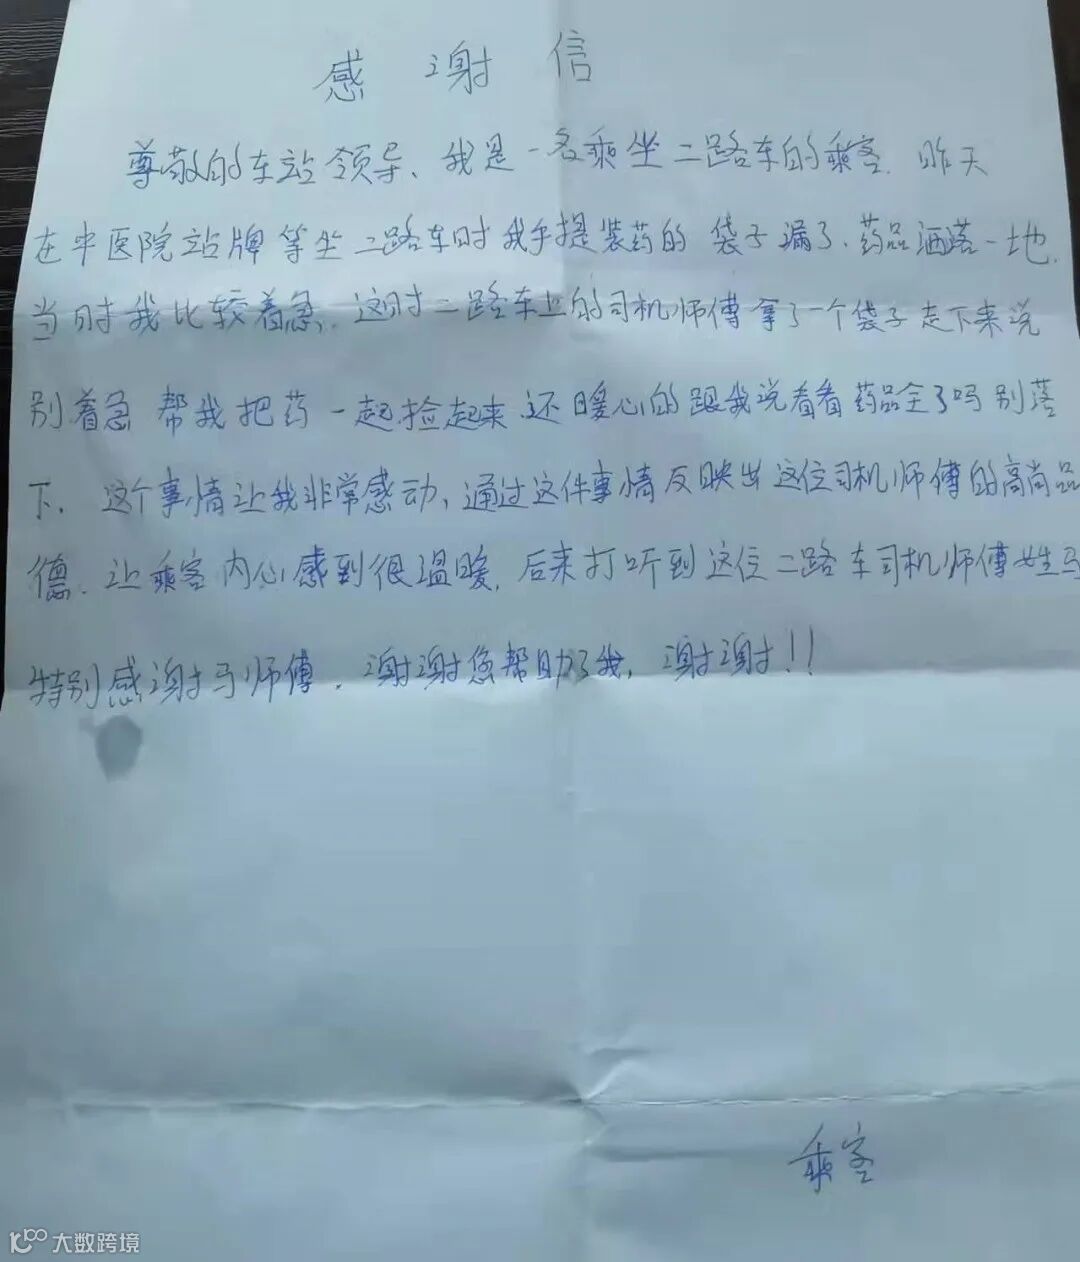 感谢信
尊敬的车站领导、我是一名乘坐二路车的乘客.昨天
在中医院站牌等坐二路车时我手提装药的袋子漏了.药品洒落一地.
当时我比较着急,.这时二路车上的司机师傅拿了一个袋子走下来说
别着急 帮我把药一起捡起来 还暖心的跟我说看看药品全了吗别落
下. 这个事情让我非常感动,通过这件事情反映出这位司机师傅的高尚品
德.让乘客内心感到很温暖.后来打听到这位二路车司机师傅姓马
特别感谢马师傅.谢谢您帮助了我,谢谢!!
乘客
大数跨境